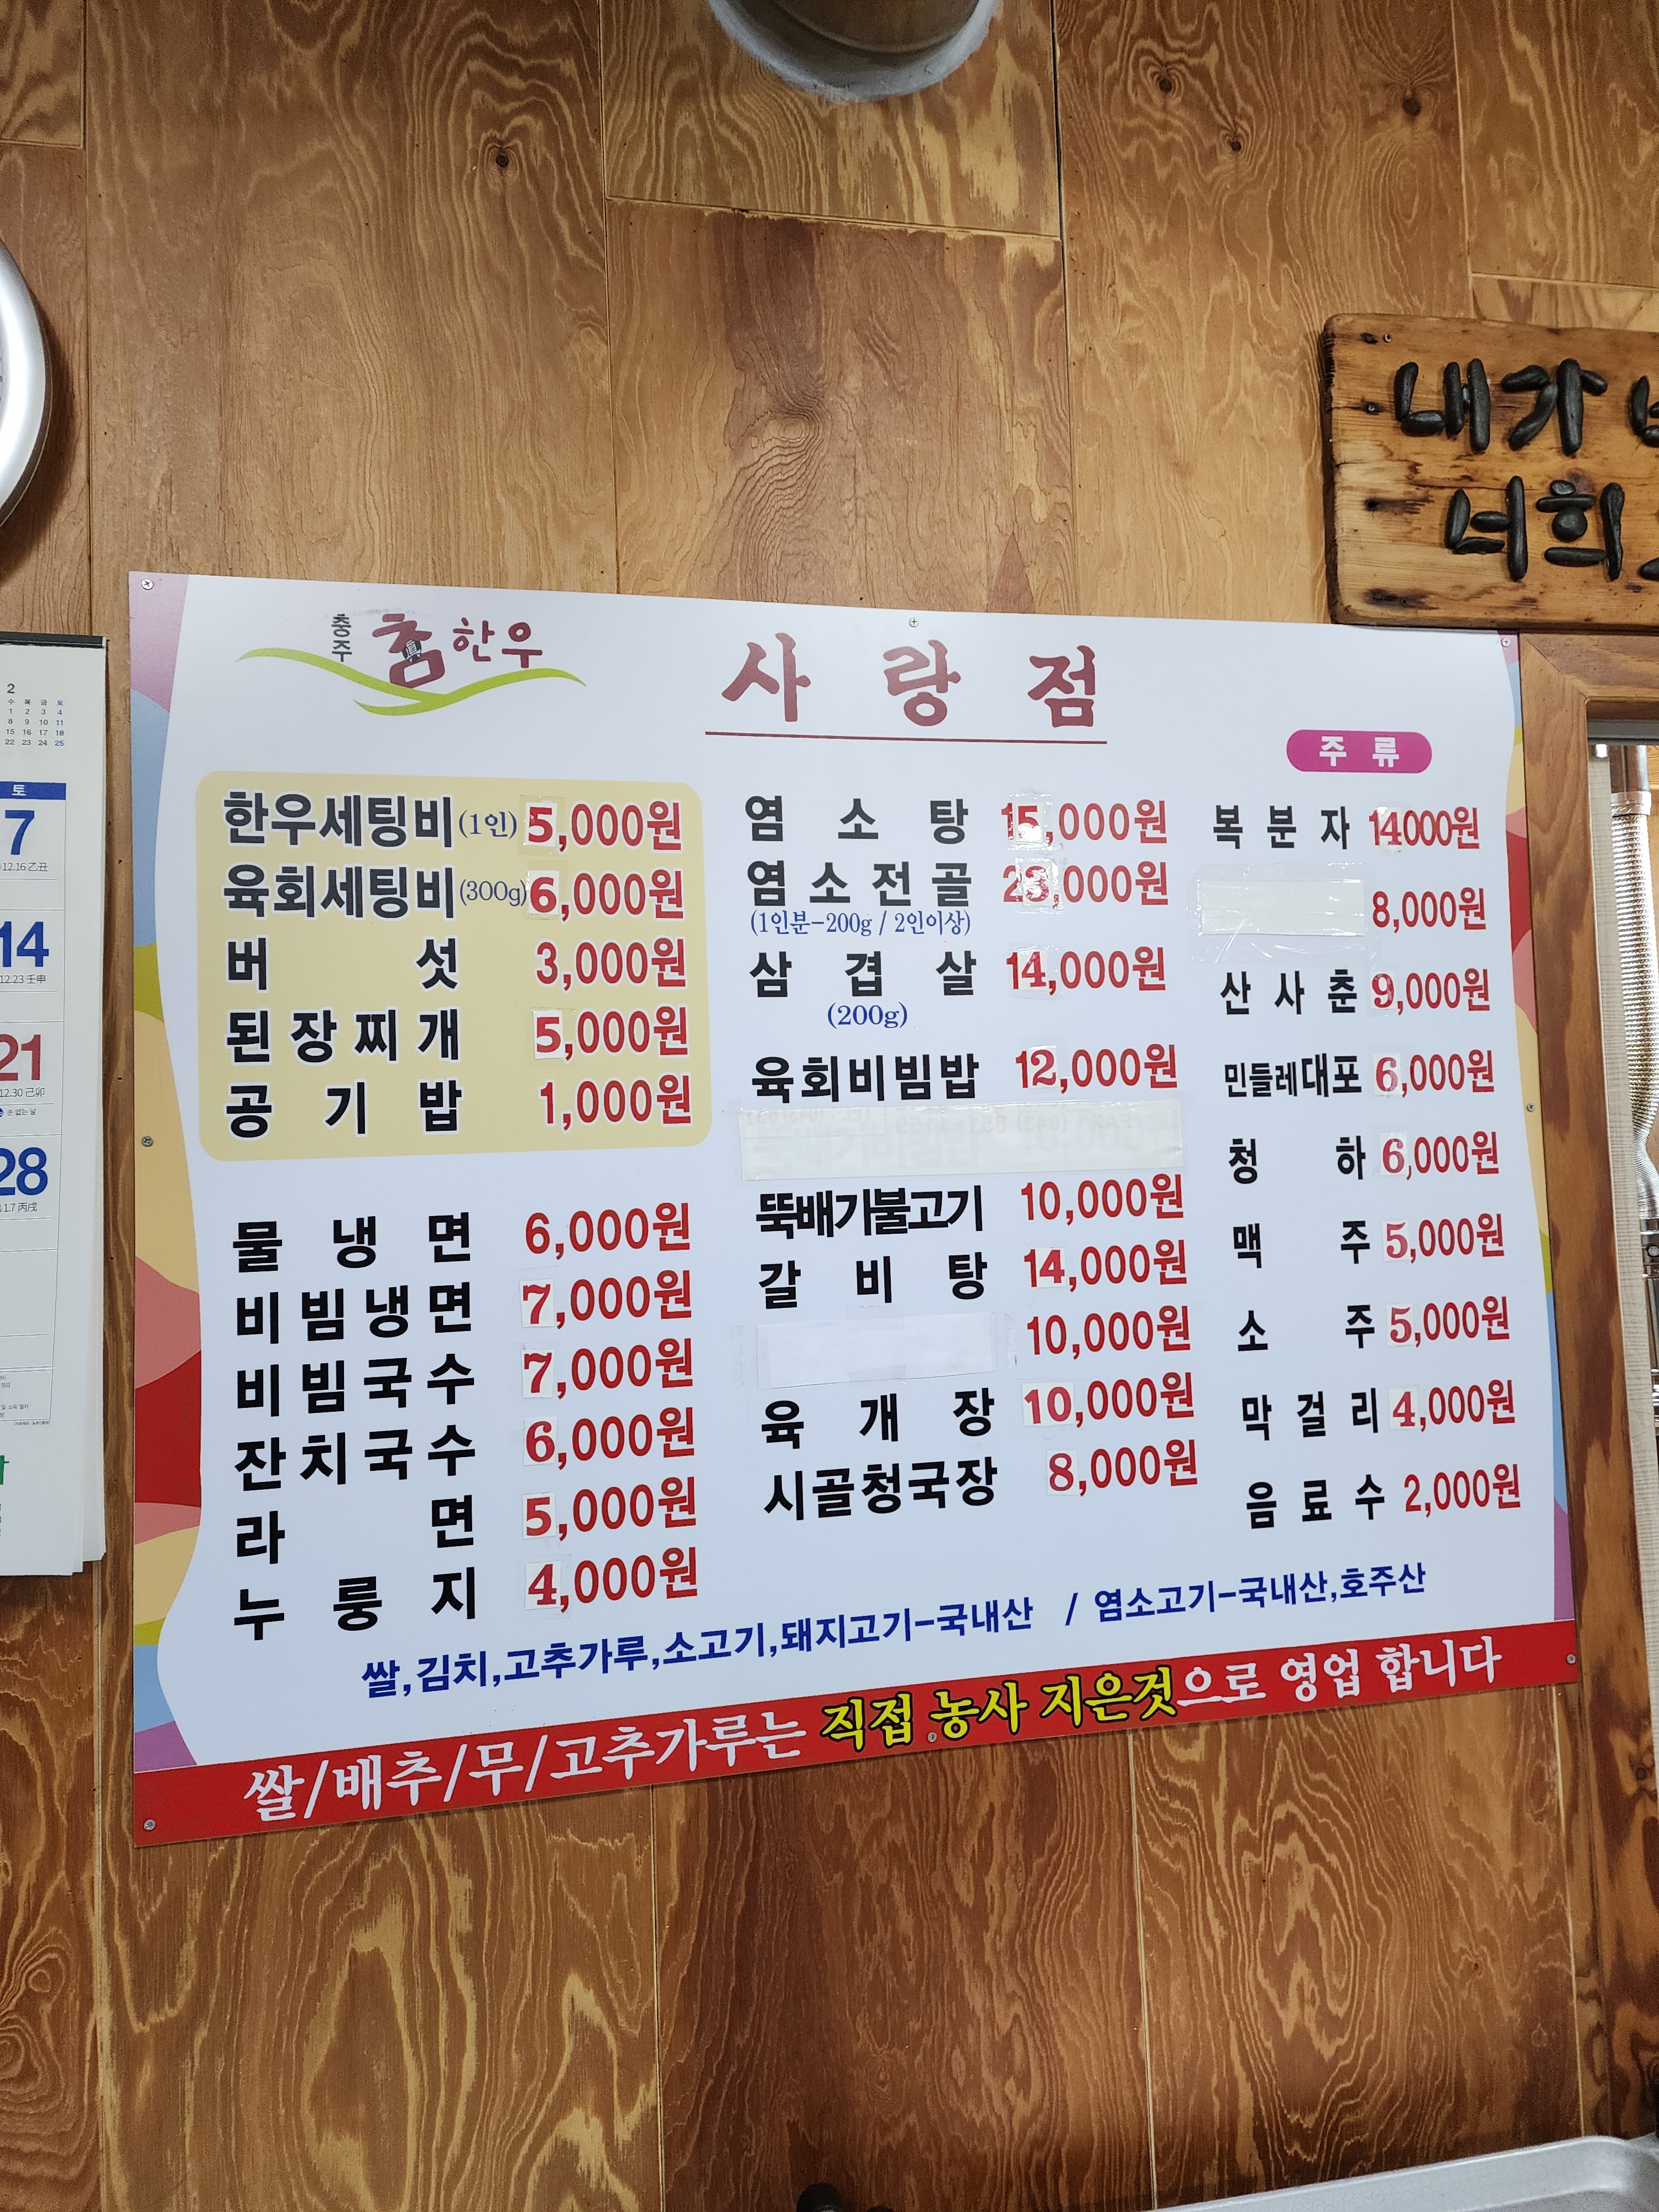 충주 참한우
사랑점
한우세팅비(1인) 5,000원
육회세팅비(300g) 6,000원
버섯 3,000원
된장찌개 5,000원
공기밥 1,000원
물냉면 6,000원
비빔냉면 7,000원
비빔국수 7,000원
잔치국수 6,000원
라면 5,000원
누룽지 4,000원
염소탕 15,000원
염소전골 23,000원
(1인분-200g / 2인이상)
삼겹살 14,000원
(200g)
육회비빔밥 12,000원
뚝배기불고기 10,000원
갈비탕 14,000원
10,000원
육개장 10,000원
시골청국장 8,000원
주류
복분자 14000원
8,000원
산사춘 9,000원
민들레대포 6,000원
청하 6,000원
맥주 5,000원
소주 5,000원
막걸리 4,000원
음료수 2,000원
쌀,김치,고추가루,소고기,돼지고기-국내산 / 염소고기-국내산,호주산
쌀/배추/무/고추가루는 직접 농사 지은것으로 영업 합니다
내가
너희
2
수 목 금 토
1 2 3 4
8 9 10 11
15 16 17 18
22 23 24 25
토
7
12.16 乙丑
14
12.23 壬申
21
12.30 己卯
손 없는 날
28
1.7 丙戌